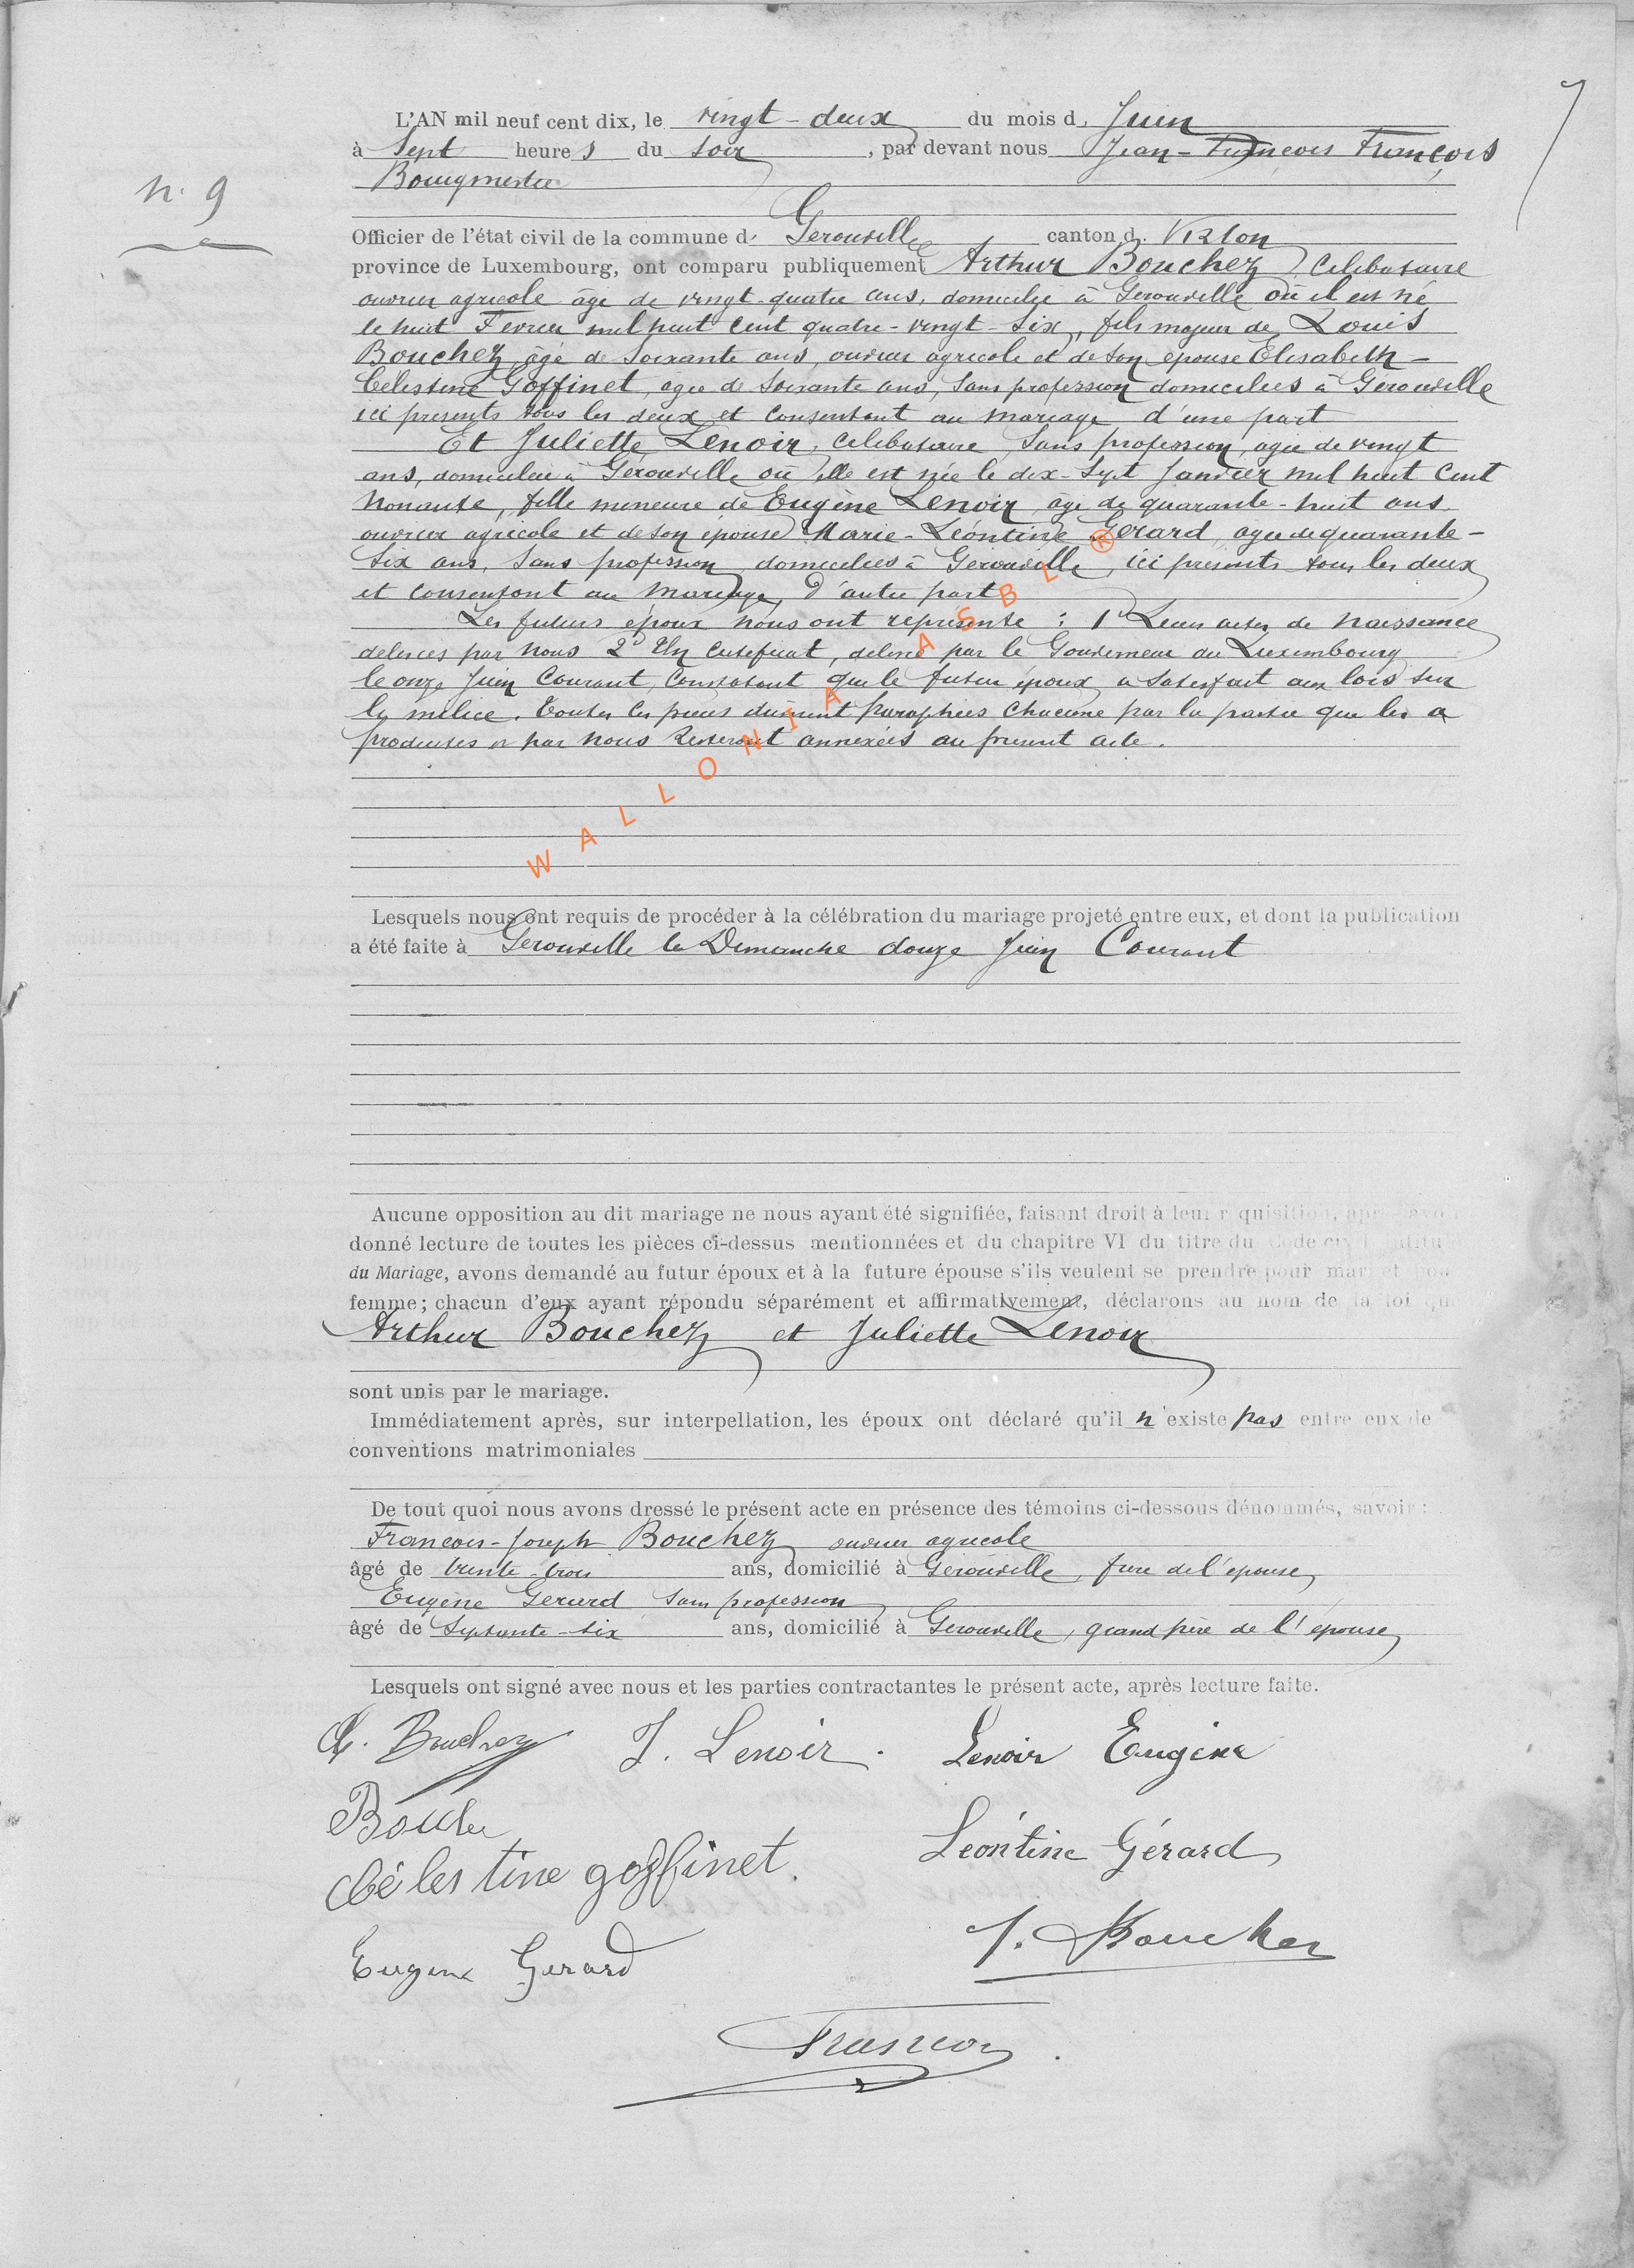 7
n. 9
L'AN mil neuf cent dix, le vingt-deux du mois d. Juin
à Sept heures du Soir, par devant nous Jean-François François
Bourgmestre
Officier de l'état civil de la commune d. Gerouville canton d. Virton
province de Luxembourg, ont comparu publiquement Arthur Bouchez, Celibataire
ouvrier agricole âgé de vingt-quatre ans, domicilié à Gerouville où il est né
le huit Fevrier mil huit cent quatre-vingt-six, fils majeur de Louis
Bouchez, âgé de soixante ans, ouvrier agricole et de son epouse Elisabeth-
Celestine Goffinet, agée de soixante ans, sans profession domiciliés à Gerouville
ici presents tous les deux et consentant au mariage d'une part
Et Juliette Lenoir, celibataire, Sans profession, agée de vingt
ans, domiciliée à Gérouville où elle est née le dix-sept Janvier mil huit Cent
Nonante, fille mineure de Eugène Lenoir, âgé de quarante-huit ans,
ouvrier agricole et de son épouse Marie-Léontine Gerard, agée de quarante-
six ans, Sans profession, domiciliés à Gérouville, ici présents tous les deux
et consentant au mariage, d'autre part
Les futurs époux nous ont représenté : 1° Leurs actes de Naissance
délivrés par nous 2° Un Certificat, délivré par le Gouverneur du Luxembourg
le onze Juin Courant, Constatant que le futur époux a satisfait aux lois sur
la milice. Toutes les pièces dûment paraphées chacune par la partie qui les a
produites et par nous resteront annexées au présent acte.
WALLONIA ASBL ®
Lesquels nous ont requis de procéder à la célébration du mariage projeté entre eux, et dont la publication
a été faite à Gerouville le Dimanche douze Juin Courant
Aucune opposition au dit mariage ne nous ayant été signifiée, faisant droit à leur réquisition, après avoir
donné lecture de toutes les pièces ci-dessus mentionnées et du chapitre VI du titre du Code civil intitulé
du Mariage, avons demandé au futur époux et à la future épouse s'ils veulent se prendre pour mari et pour
femme; chacun d'eux ayant répondu séparément et affirmativement, déclarons au nom de la loi que
Arthur Bouchez et Juliette Lenoir
sont unis par le mariage.
Immédiatement après, sur interpellation, les époux ont déclaré qu'il n'existe pas entre eux de
conventions matrimoniales
De tout quoi nous avons dressé le présent acte en présence des témoins ci-dessous dénommés, savoir :
Francois-Joseph Bouchez ouvrier agricole
âgé de trente-trois ans, domicilié à Gerouville, frere de l'epouse,
Eugène Gerard Sans profession
âgé de Septante-six ans, domicilié à Gerouville, grand père de l'épouse,
Lesquels ont signé avec nous et les parties contractantes le présent acte, après lecture faite.
A. Bouchez J. Lenoir. Lenoir Eugène
Léontine Gérard
Célestine goffinet.
J. Bouchez
Eugène Gerard
Francois